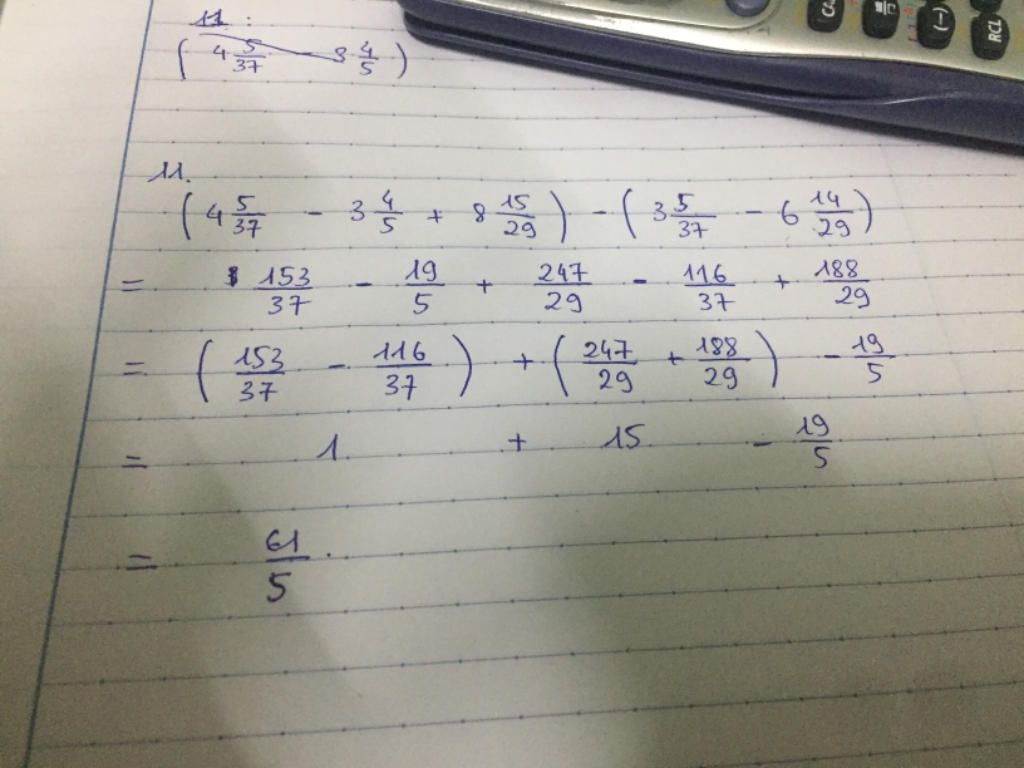 11:
( 4 5/37 - 3 4/5 )
CA (-) RCL
11.
( 4 5/37 - 3 4/5 + 8 15/29 ) - ( 3 5/37 - 6 14/29 )
= 153/37 - 19/5 + 247/29 - 116/37 + 188/29
= ( 153/37 - 116/37 ) + ( 247/29 + 188/29 ) - 19/5
= 1 + 15 - 19/5
= 61/5 .